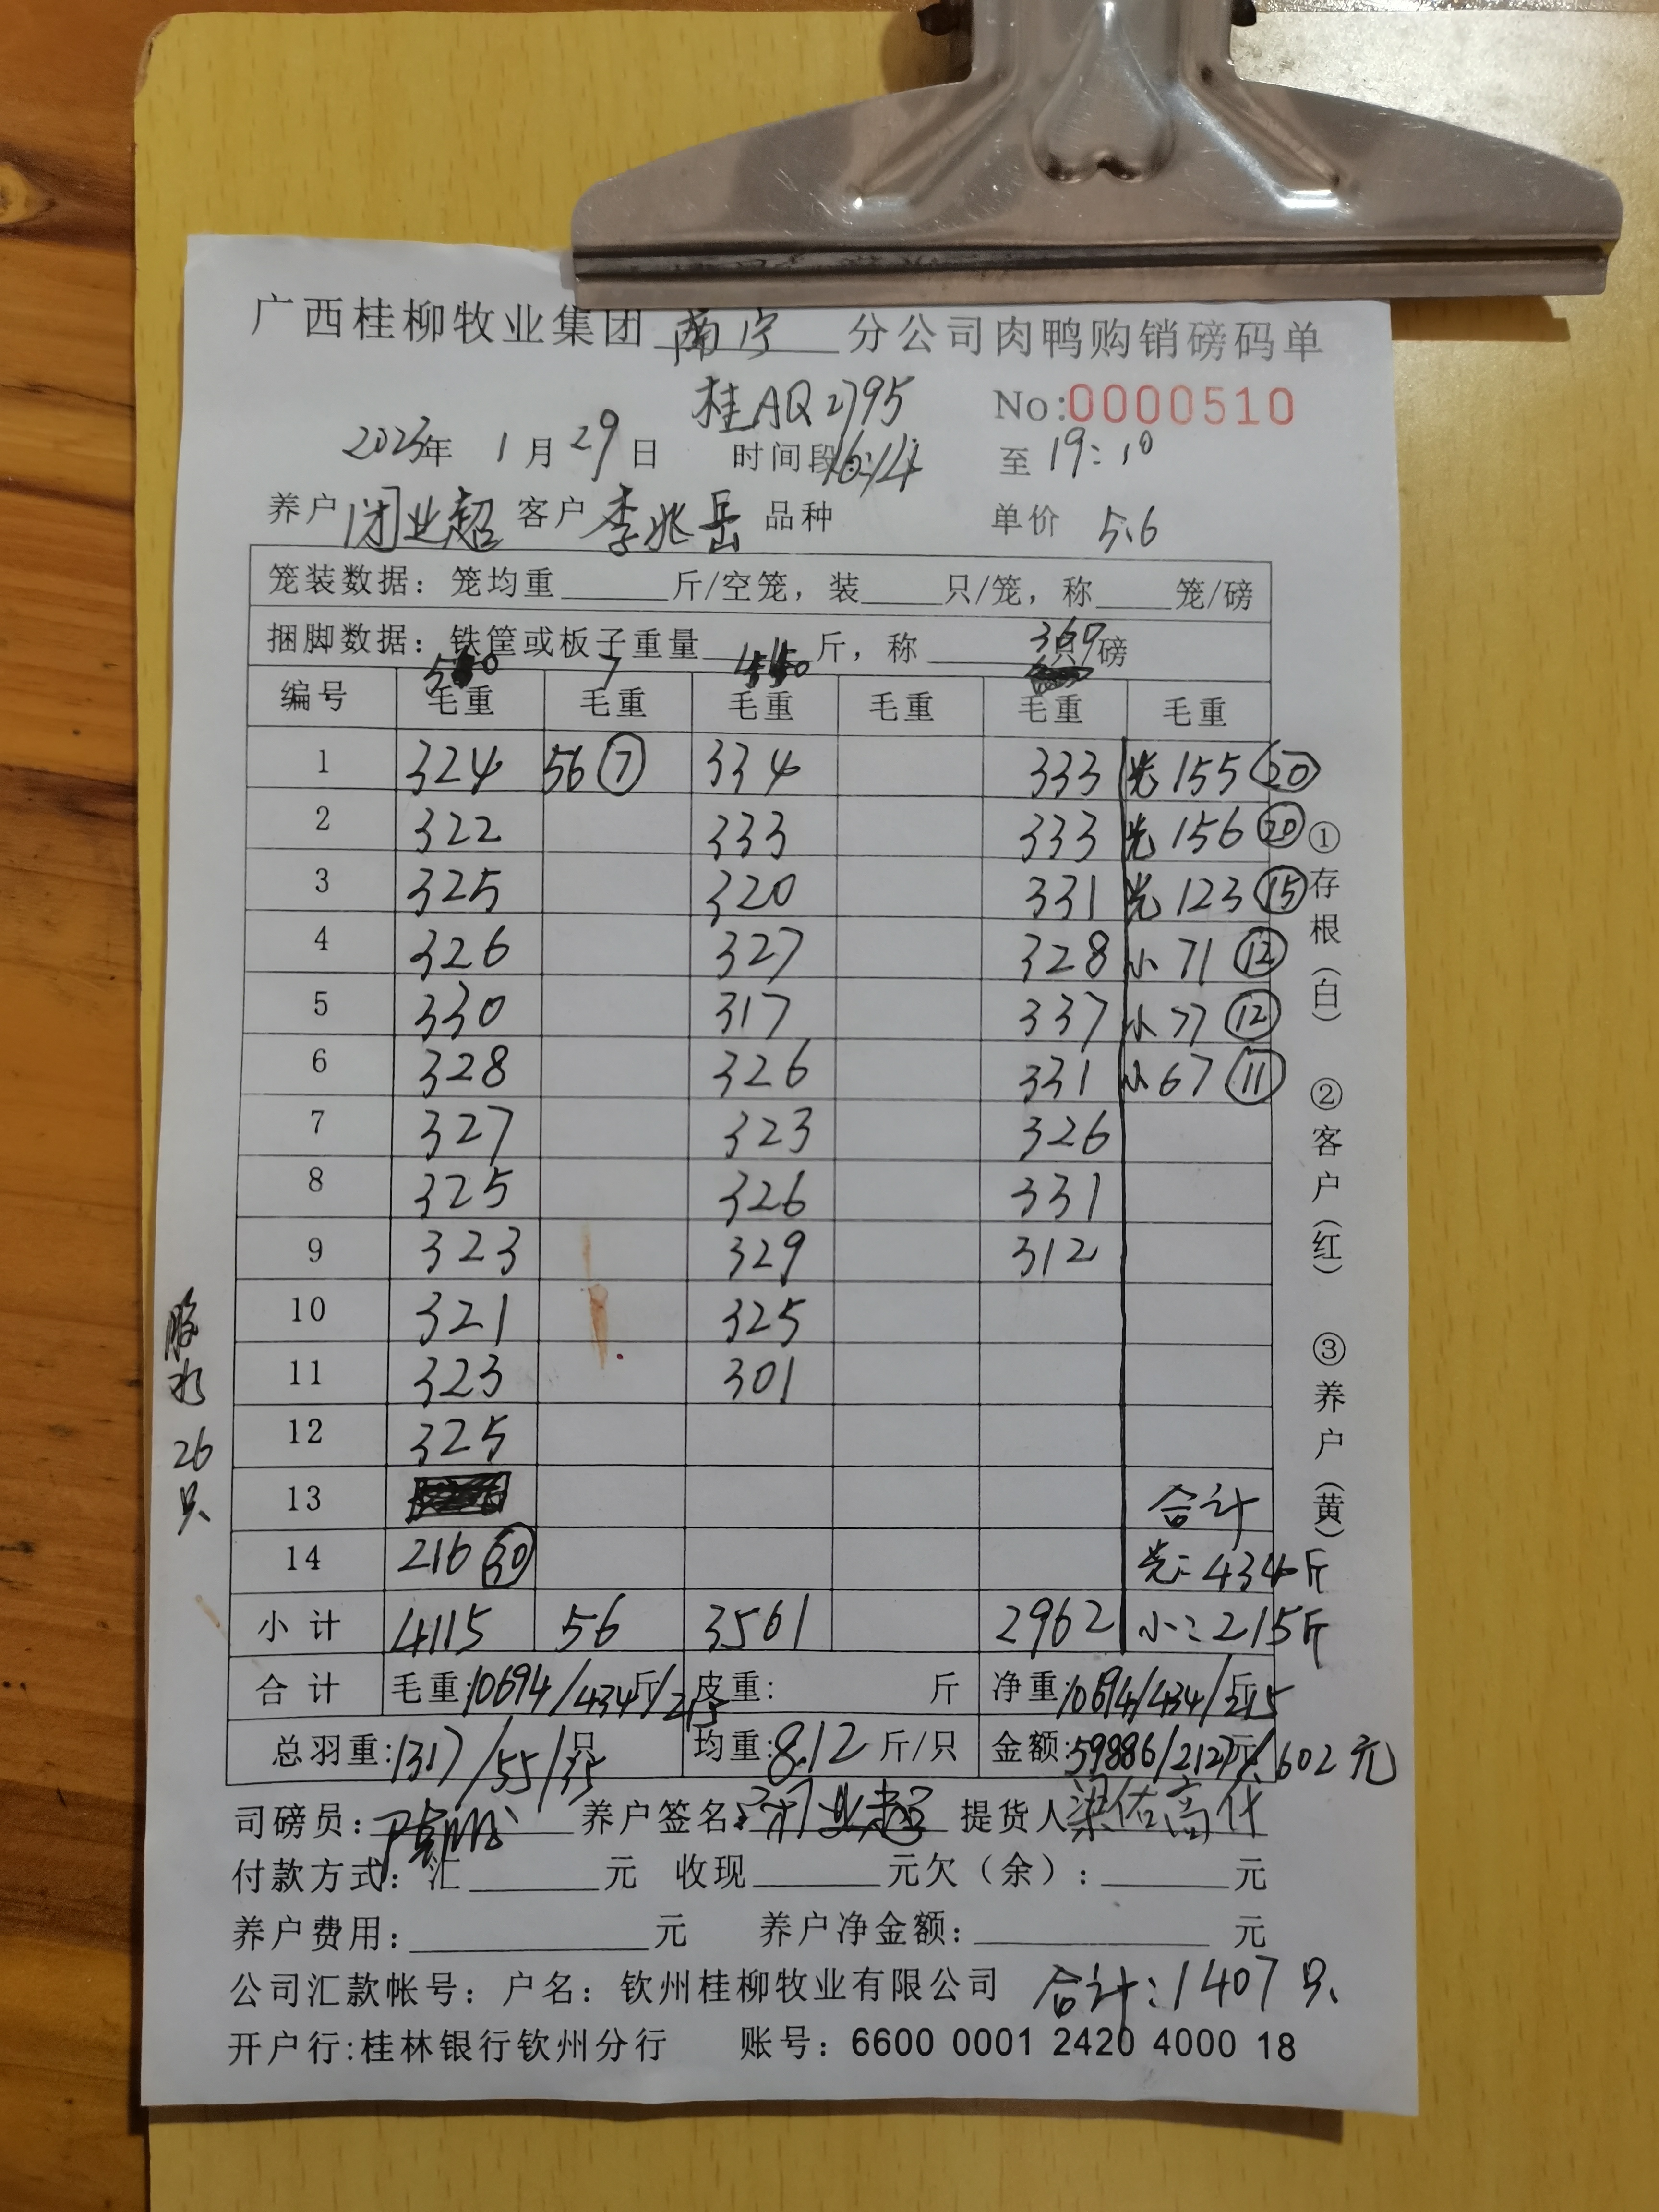 广西桂柳牧业集团 南宁 分公司肉鸭购销磅码单
桂AQ2795 No:0000510
2023年 1月29日 时间段16:14 至 19:10
养户 闭业超 客户 李兆岳 品种 单价 5.6
笼装数据：笼均重 斤/空笼，装 只/笼，称 笼/磅
捆脚数据：铁筐或板子重量 斤，称 只/磅
7 360
编号 毛重 毛重 毛重 毛重 毛重 毛重
1 324 56 ⑦ 334 333 光 155 ⑳
2 322 333 333 光 156 ⑳
3 325 320 331 光 123 ⑮
4 326 327 328 小 71 ⑫
5 330 317 337 小 77 ⑫
6 328 326 331 小 67 ⑪
7 327 323 326
8 325 326 331
9 323 329 312
10 321 325
11 323 301
12 325
13 合计
14 216 光：434斤
小计 4115 56 3561 2962 小：215斤
合计 毛重:10694/434斤/215 皮重: 斤 净重:10694/434/215斤
总羽重:1317/55/35只 均重:8.12斤/只 金额:59886/2127元/602元
司磅员: 养户签名:闭业超 提货人梁佑高代
付款方式：汇 元 收现 元欠（余）： 元
养户费用： 元 养户净金额： 元
公司汇款帐号：户名：钦州桂柳牧业有限公司 合计：1407只
开户行:桂林银行钦州分行 账号：6600 0001 2420 4000 18
①存根（白） ②客户（红） ③养户（黄）
26只